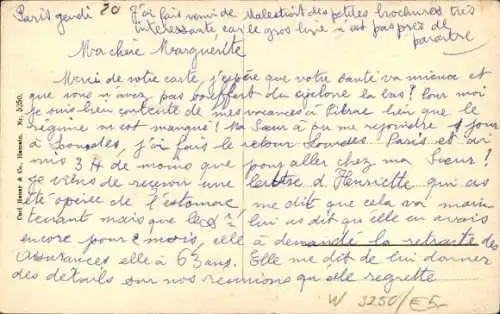 Paris jeudi 20 J'ai fait venir de Malestroit des petites brochures très
intéressante car le gros livre n'est pas près de
paraître
Ma chère Marguerite
Merci de votre carte, j'espère que votre santé va mieux et
que vous n'avez pas souffert du cyclone là bas? Pour moi
je suis bien contente de mes vacances à Pibrac bien que le
régime m'est manqué! Ma Sœur a pu me rejoindre 1 jour
à Lourdes, j'ai fais le retour Lourdes Paris et ai
mis 3 H de moins que pour aller chez ma Sœur!
Je viens de recevoir une lettre d'Henriette qui a
été opérée de l'estomac me dit que cela va main-
tenant mais que lui as dit qu'elle en avais
encore pour 2 mois, elle à demandé la retraite des
Assurances elle à 63 ans. Elle me dit de lui donner
des détails sur nos réunions qu'elle regrette
Carl Henne & Co., Hameln. Nr. 3250.
W 3250/E5-